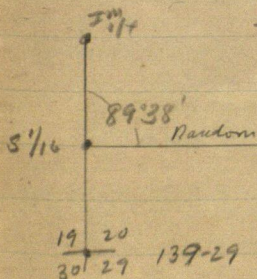 1/4
89°38'
S 1/16
Random
19 20
30 29 139-29